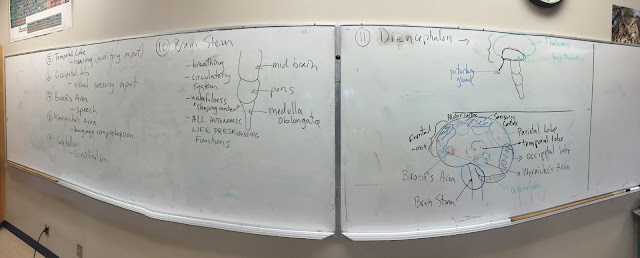 ⑤ Temporal Lobe
- hearing (auditory input)
⑥ Occipital lobe
- visual sensory input
⑦ Broca's Area
- speech
⑧ Wernicke's Area
- language comprehension
⑨ Cerebellum
- Coordination
⑩ Brain Stem
- breathing
- circulatory
system
- wakefulness
"sleeping center"
- ALL AUTONOMIC
LIFE PRESERVING
Functions
mid brain
pons
medulla
oblongata
⑪ Diencephalon →
Thalamus
hypothalamus
pituitary
gland
Motor Cortex
Sensory
Cortex
Frontal
Parietal Lobe
temporal lobe
Occipital lobe
Wernicke's Area
Broca's Area
Brain Stem